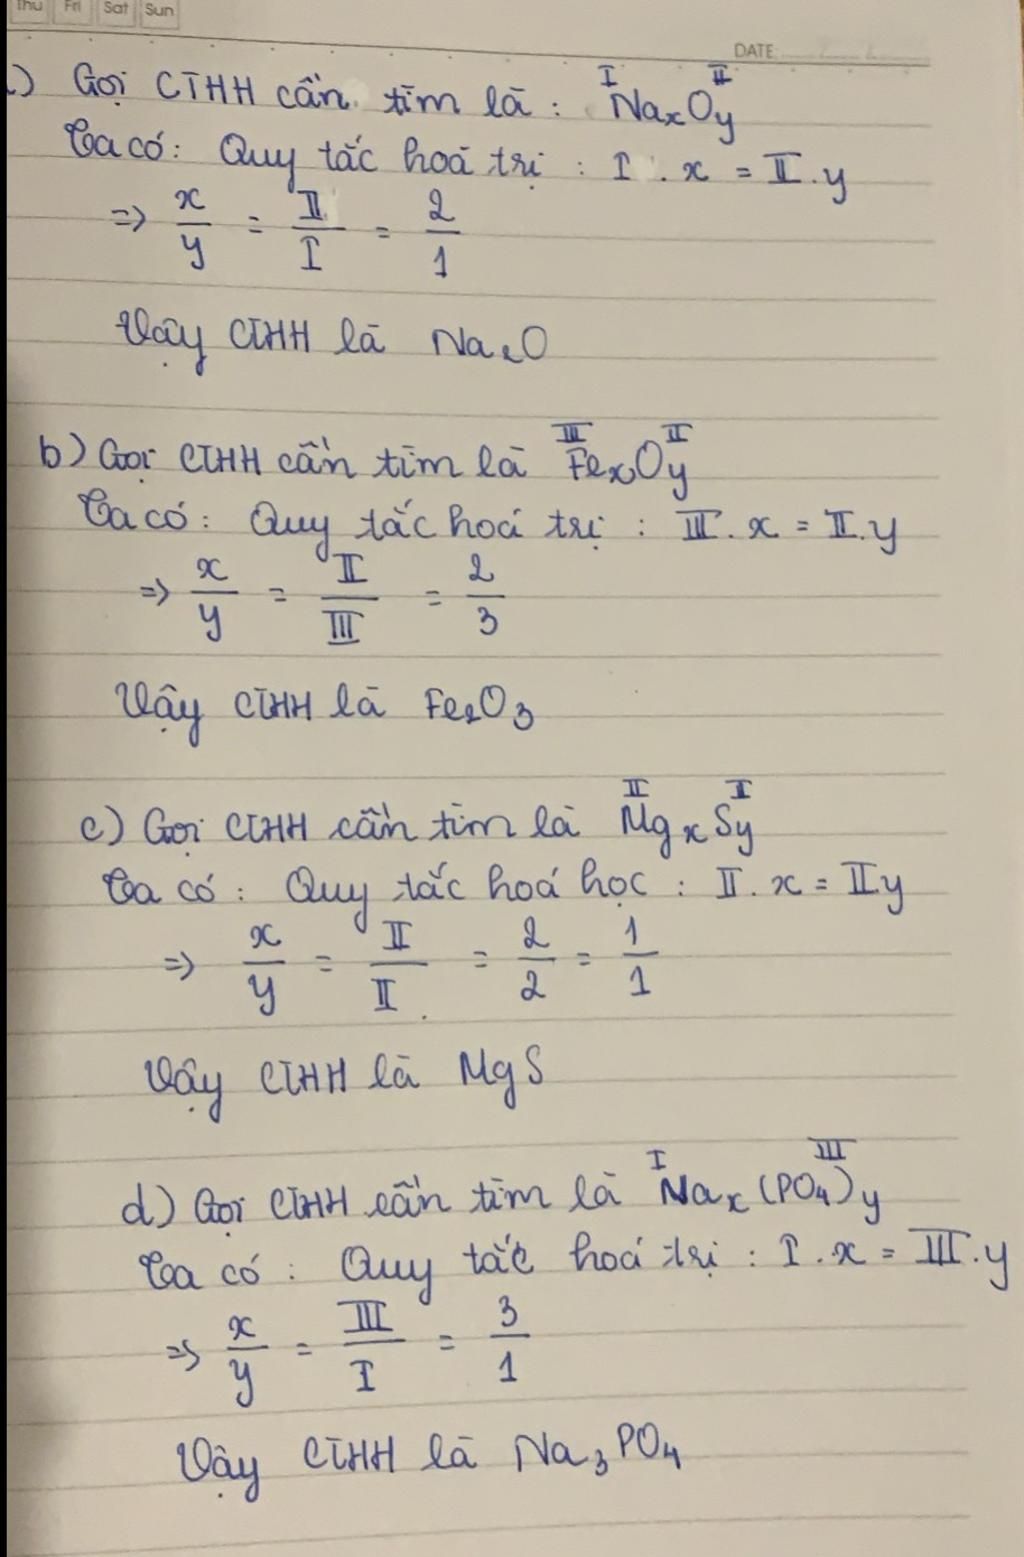 Thu Fri Sat Sun
DATE
) Gọi CTHH cần tìm là : I II NaxOy
Ta có : Quy tắc hoá trị : I . x = II . y
=> x/y = II/I = 2/1
Vậy CTHH là Na2O
b) Gọi CTHH cần tìm là III II FexOy
Ta có : Quy tắc hoá trị : III . x = II . y
=> x/y = II/III = 2/3
Vậy CTHH là Fe2O3
c) Gọi CTHH cần tìm là II I MgxSy
Ta có : Quy tắc hoá học : II . x = II.y
=> x/y = II/II = 2/2 = 1/1
Vậy CTHH là MgS
d) Gọi CTHH cần tìm là I III Nax(PO4)y
Ta có : Quy tắc hoá trị : I . x = III . y
=> x/y = III/I = 3/1
Vậy CTHH là Na3PO4